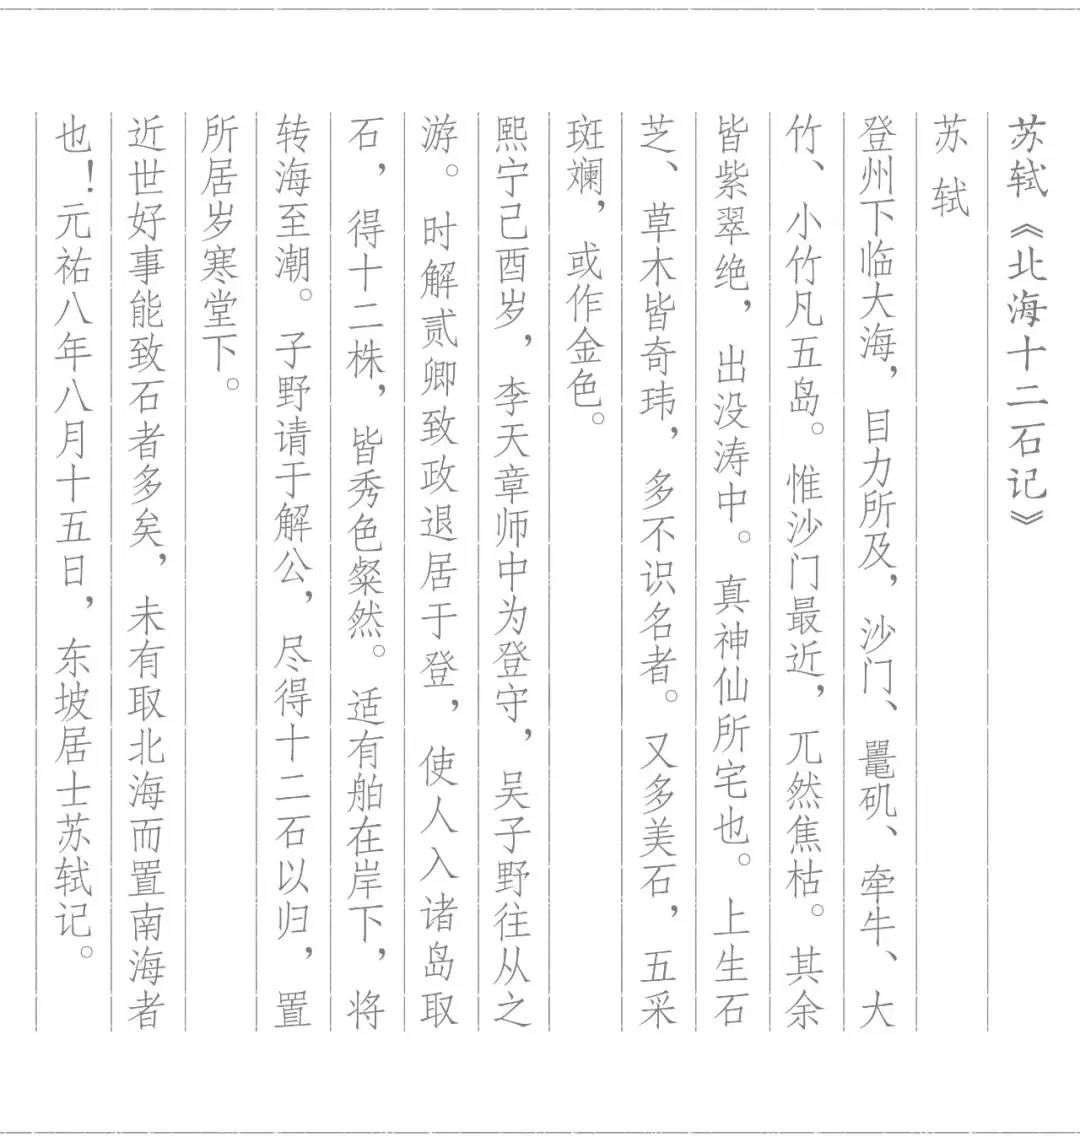 苏轼《北海十二石记》
苏轼
登州下临大海，目力所及，沙门、鼍矶、牵牛、大
竹、小竹凡五岛。惟沙门最近，兀然焦枯。其余
皆紫翠绝，出没涛中。真神仙所宅也。上生石
芝、草木皆奇玮，多不识名者。又多美石，五采
斑斓，或作金色。
熙宁己酉岁，李天章师中为登守，吴子野往从之
游。时解贰卿致政退居于登，使人入诸岛取
石，得十二株，皆秀色粲然。适有舶在岸下，将
转海至潮。子野请于解公，尽得十二石以归，置
所居岁寒堂下。
近世好事能致石者多矣，未有取北海而置南海者
也！元祐八年八月十五日，东坡居士苏轼记。